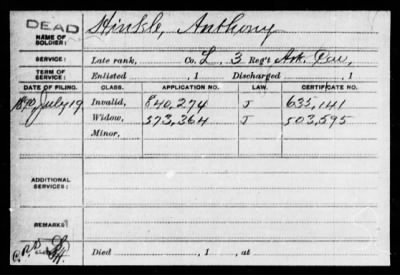 DEAD
NAME OF SOLDIER: Hinkle, Anthony
SERVICE: Late rank, Co. L, 3 Reg't Ark. Cav,
TERM OF SERVICE: Enlisted , 1 Discharged , 1
DATE OF FILING. CLASS. APPLICATION NO. LAW. CERTIFICATE NO.
1890, July 19 Invalid, 840,274 J 635,141
Widow, 573,364 J 503,595
Minor,
ADDITIONAL SERVICES:
REMARKS:
Died , 1 , at